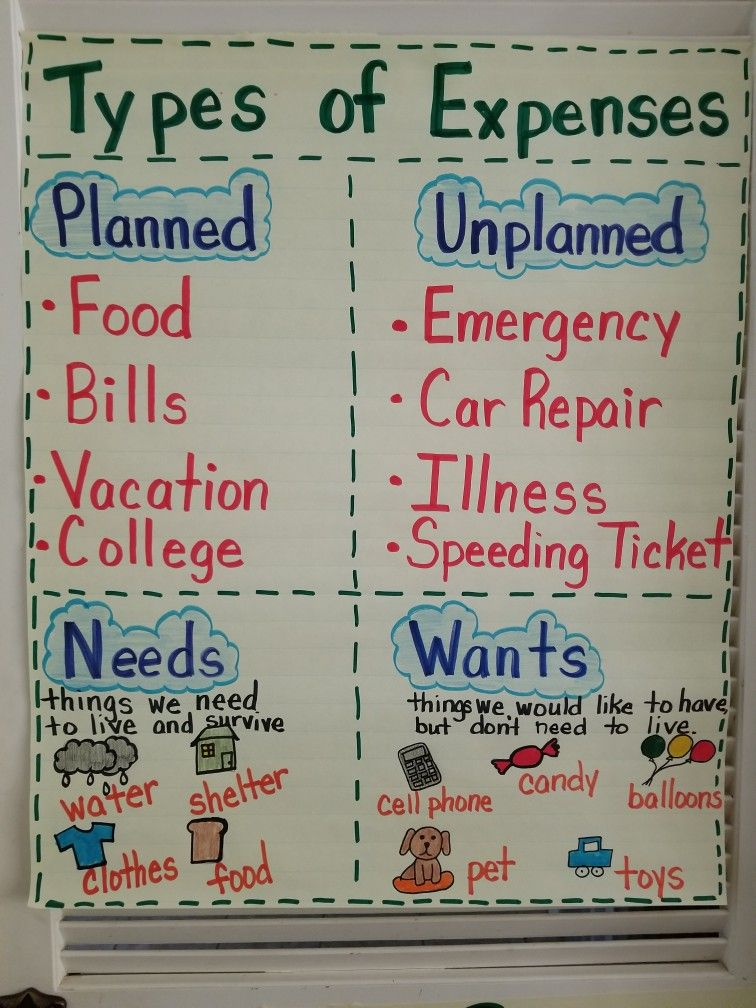 Types of Expenses
Planned
• Food
• Bills
• Vacation
• College
Unplanned
• Emergency
• Car Repair
• Illness
• Speeding Ticket
Needs
things we need
to live and survive
water
shelter
clothes
food
Wants
things we would like to have,
but don't need to live.
cell phone
candy
balloons
pet
toys